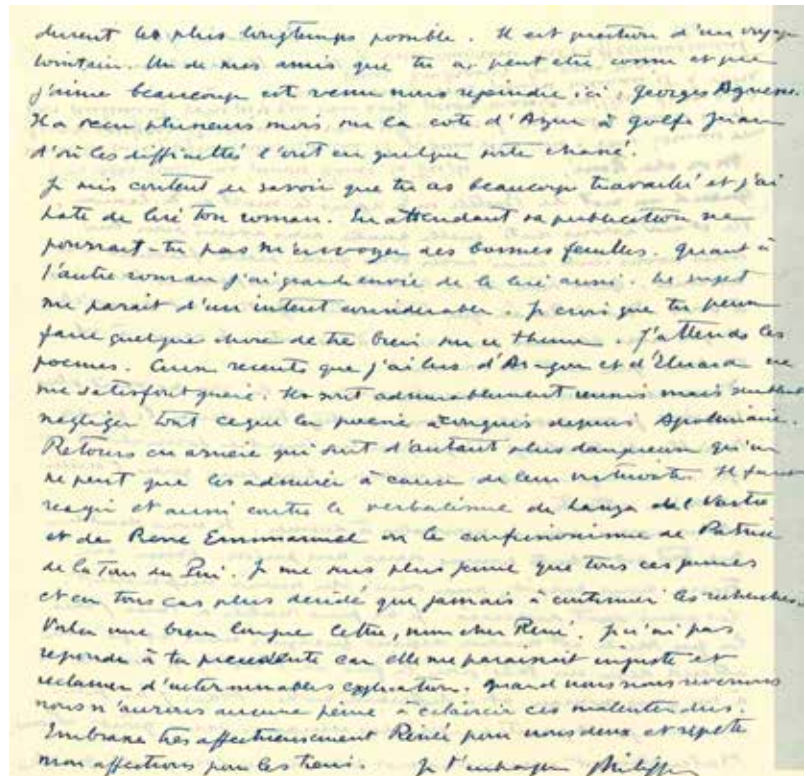 durent le plus longtemps possible. Il est question d'un voyage
lointain. Un de mes amis que tu as peut etre connu et que
j'aime beaucoup est venu nous rejoindre ici, Georges
Il a vecu plusieurs mois sur la cote d'Azur à Golfe Juan
d'où les difficultés l'ont en quelque sorte chassé.
Je suis content de savoir que tu as beaucoup travaillé et j'ai
hate de lire ton roman. En attendant sa publication ne
pourrait-tu pas m'envoyer des bonnes feuilles. Quant à
l'autre roman j'ai grande envie de le lire aussi. Le sujet
me parait d'un interet considerable. Je crois que tu peux
faire quelque chose de tres bien sur ce theme. J'attends les
poemes. Ceux recents que j'ai lus d'Aragon et d'Eluard ne
me satisfont guere. Ils sont admirablement mais semblent
negliger tout ce que la poesie a conquis depuis Apollinaire.
Retours en arriere qui sont d'autant plus dangereux qu'on
ne peut que les admirer à cause de leur Il faut
reagir et aussi contre le verbalisme de Lanza del Vasto
et de Pierre Emmanuel ou le confusionisme de Patrice
de la Tour du Pin. Je me sens plus jeune que tous ces jeunes
et en tous cas plus decidé que jamais à continuer les recherches.
Voila une bien longue lettre, mon cher René. Je n'ai pas
repondu à ta precedente car elle me paraissait injuste et
reclamer d'interminables explications. Quand nous nous reverrons
nous n'aurons aucune peine à eclaircir ces malentendus.
Embrasse tres affectueusement Renée pour nous deux et repete
mon affection pour les tiens. Je t'embrasse Philippe